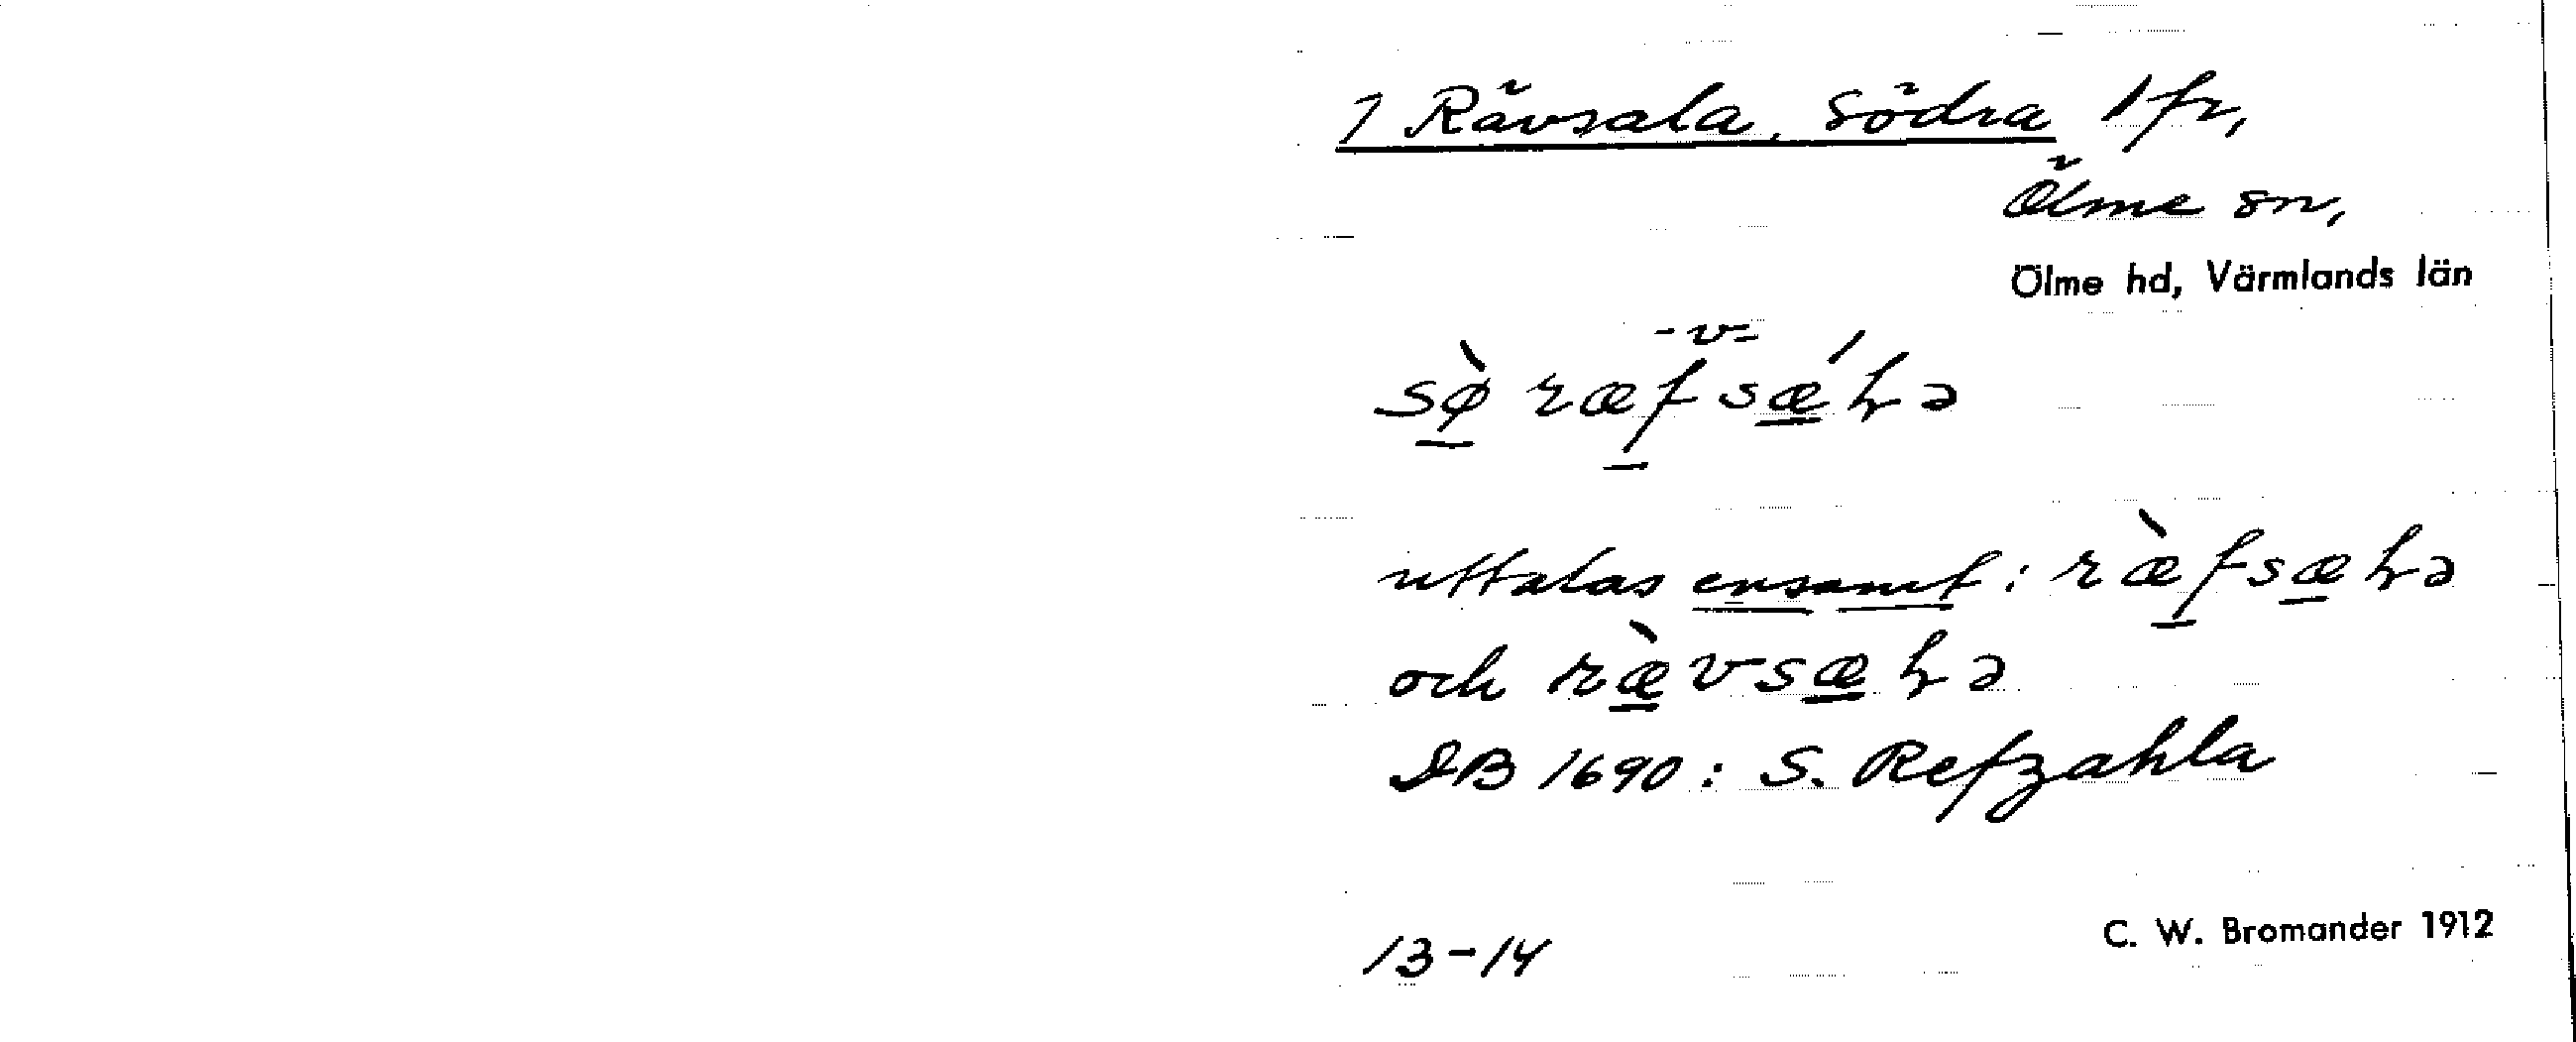 1 Rävsala, Södra 1 fr,
Ölme sn,
Ölme hd, Värmlands län
-v-
sø̀ ræfsǽɽə
uttalas ensamt: ræ̀fsæɽə
och ræ̀vsæɽə
DB 1690: S. Refzahla
13-14
C. W. Bromander 1912